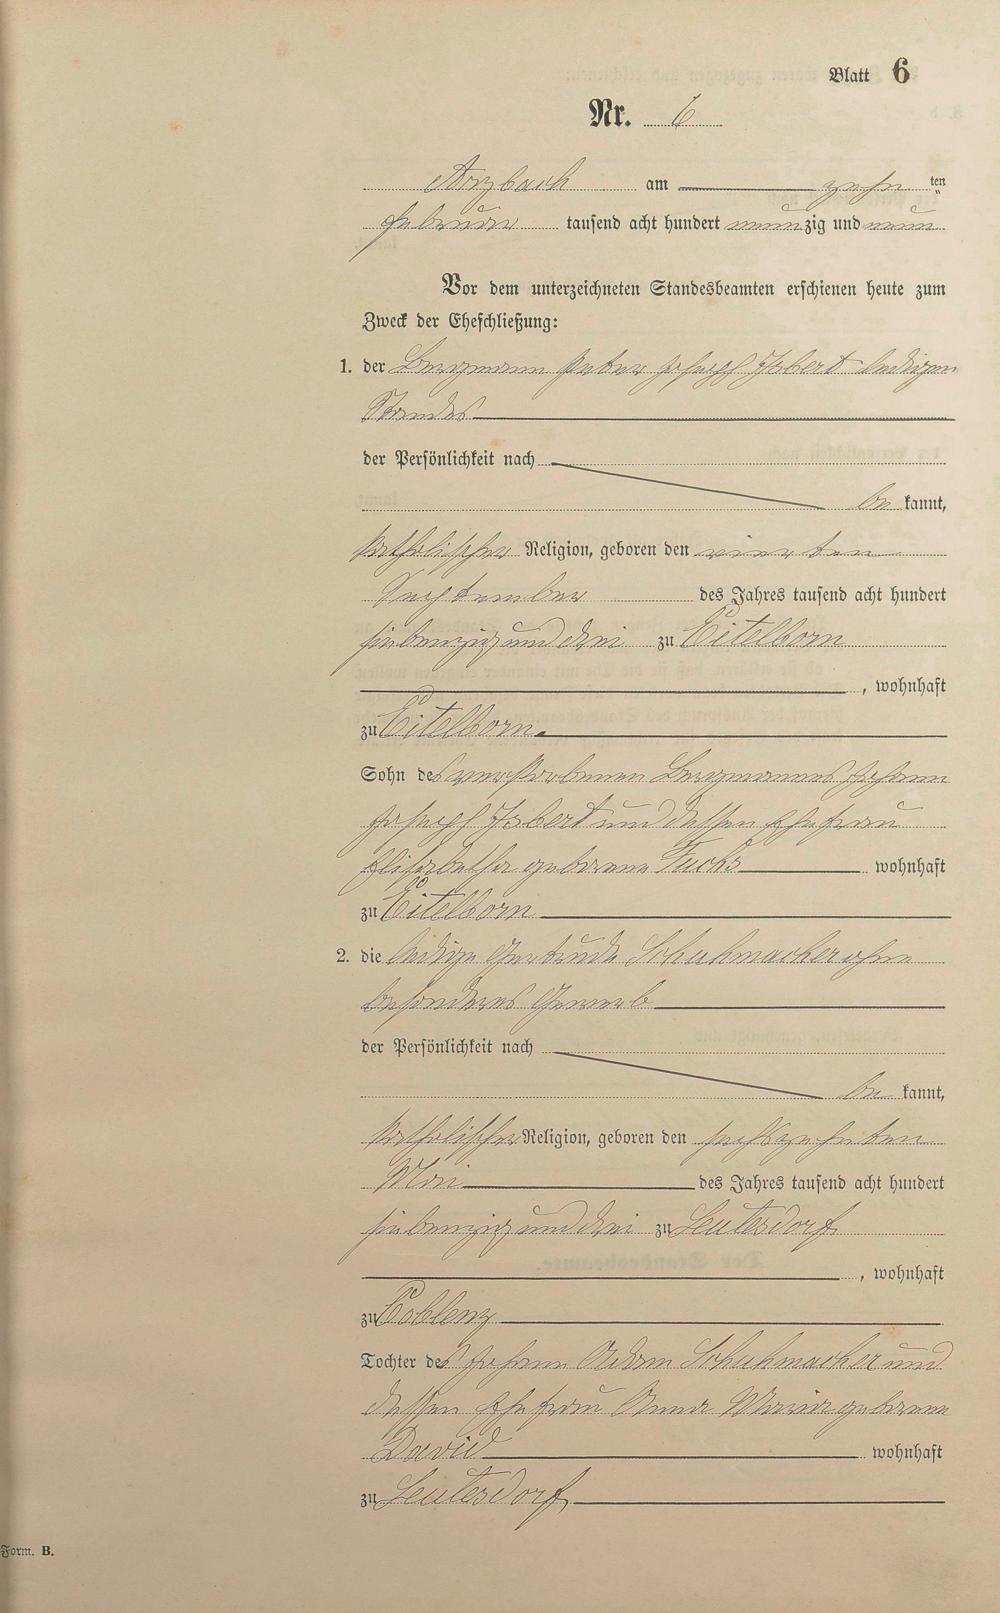 Blatt 6
Nr. 6
Arzbach am zehn ten
Februar tausend acht hundert neunzig und neun
Vor dem unterzeichneten Standesbeamten erschienen heute zum
Zweck der Eheschließung:
1. der Bergmann Peter Joseph Isbert ledigen
Standes
der Persönlichkeit nach
be kannt,
katholischer Religion, geboren den vierten
September des Jahres tausend acht hundert
siebenzig und drei zu Eitelborn
, wohnhaft
zu Eitelborn.
Sohn des verstorbenen Bergmannes Johann
Joseph Isbert und dessen Ehefrau
Elisabetha geborene Fuchs wohnhaft
zu Eitelborn
2. die ledige Gertrude Schuhmacher ohne
besonderes Gewerb
der Persönlichkeit nach
be kannt,
katholischer Religion, geboren den sechszehnten
Mai des Jahres tausend acht hundert
siebenzig und drei zu Leutesdorf
, wohnhaft
zu Coblenz
Tochter des Johann Adam Schuhmacher und
dessen Ehefrau Anna Maria geborene
David wohnhaft
zu Leutesdorf
Form. B.